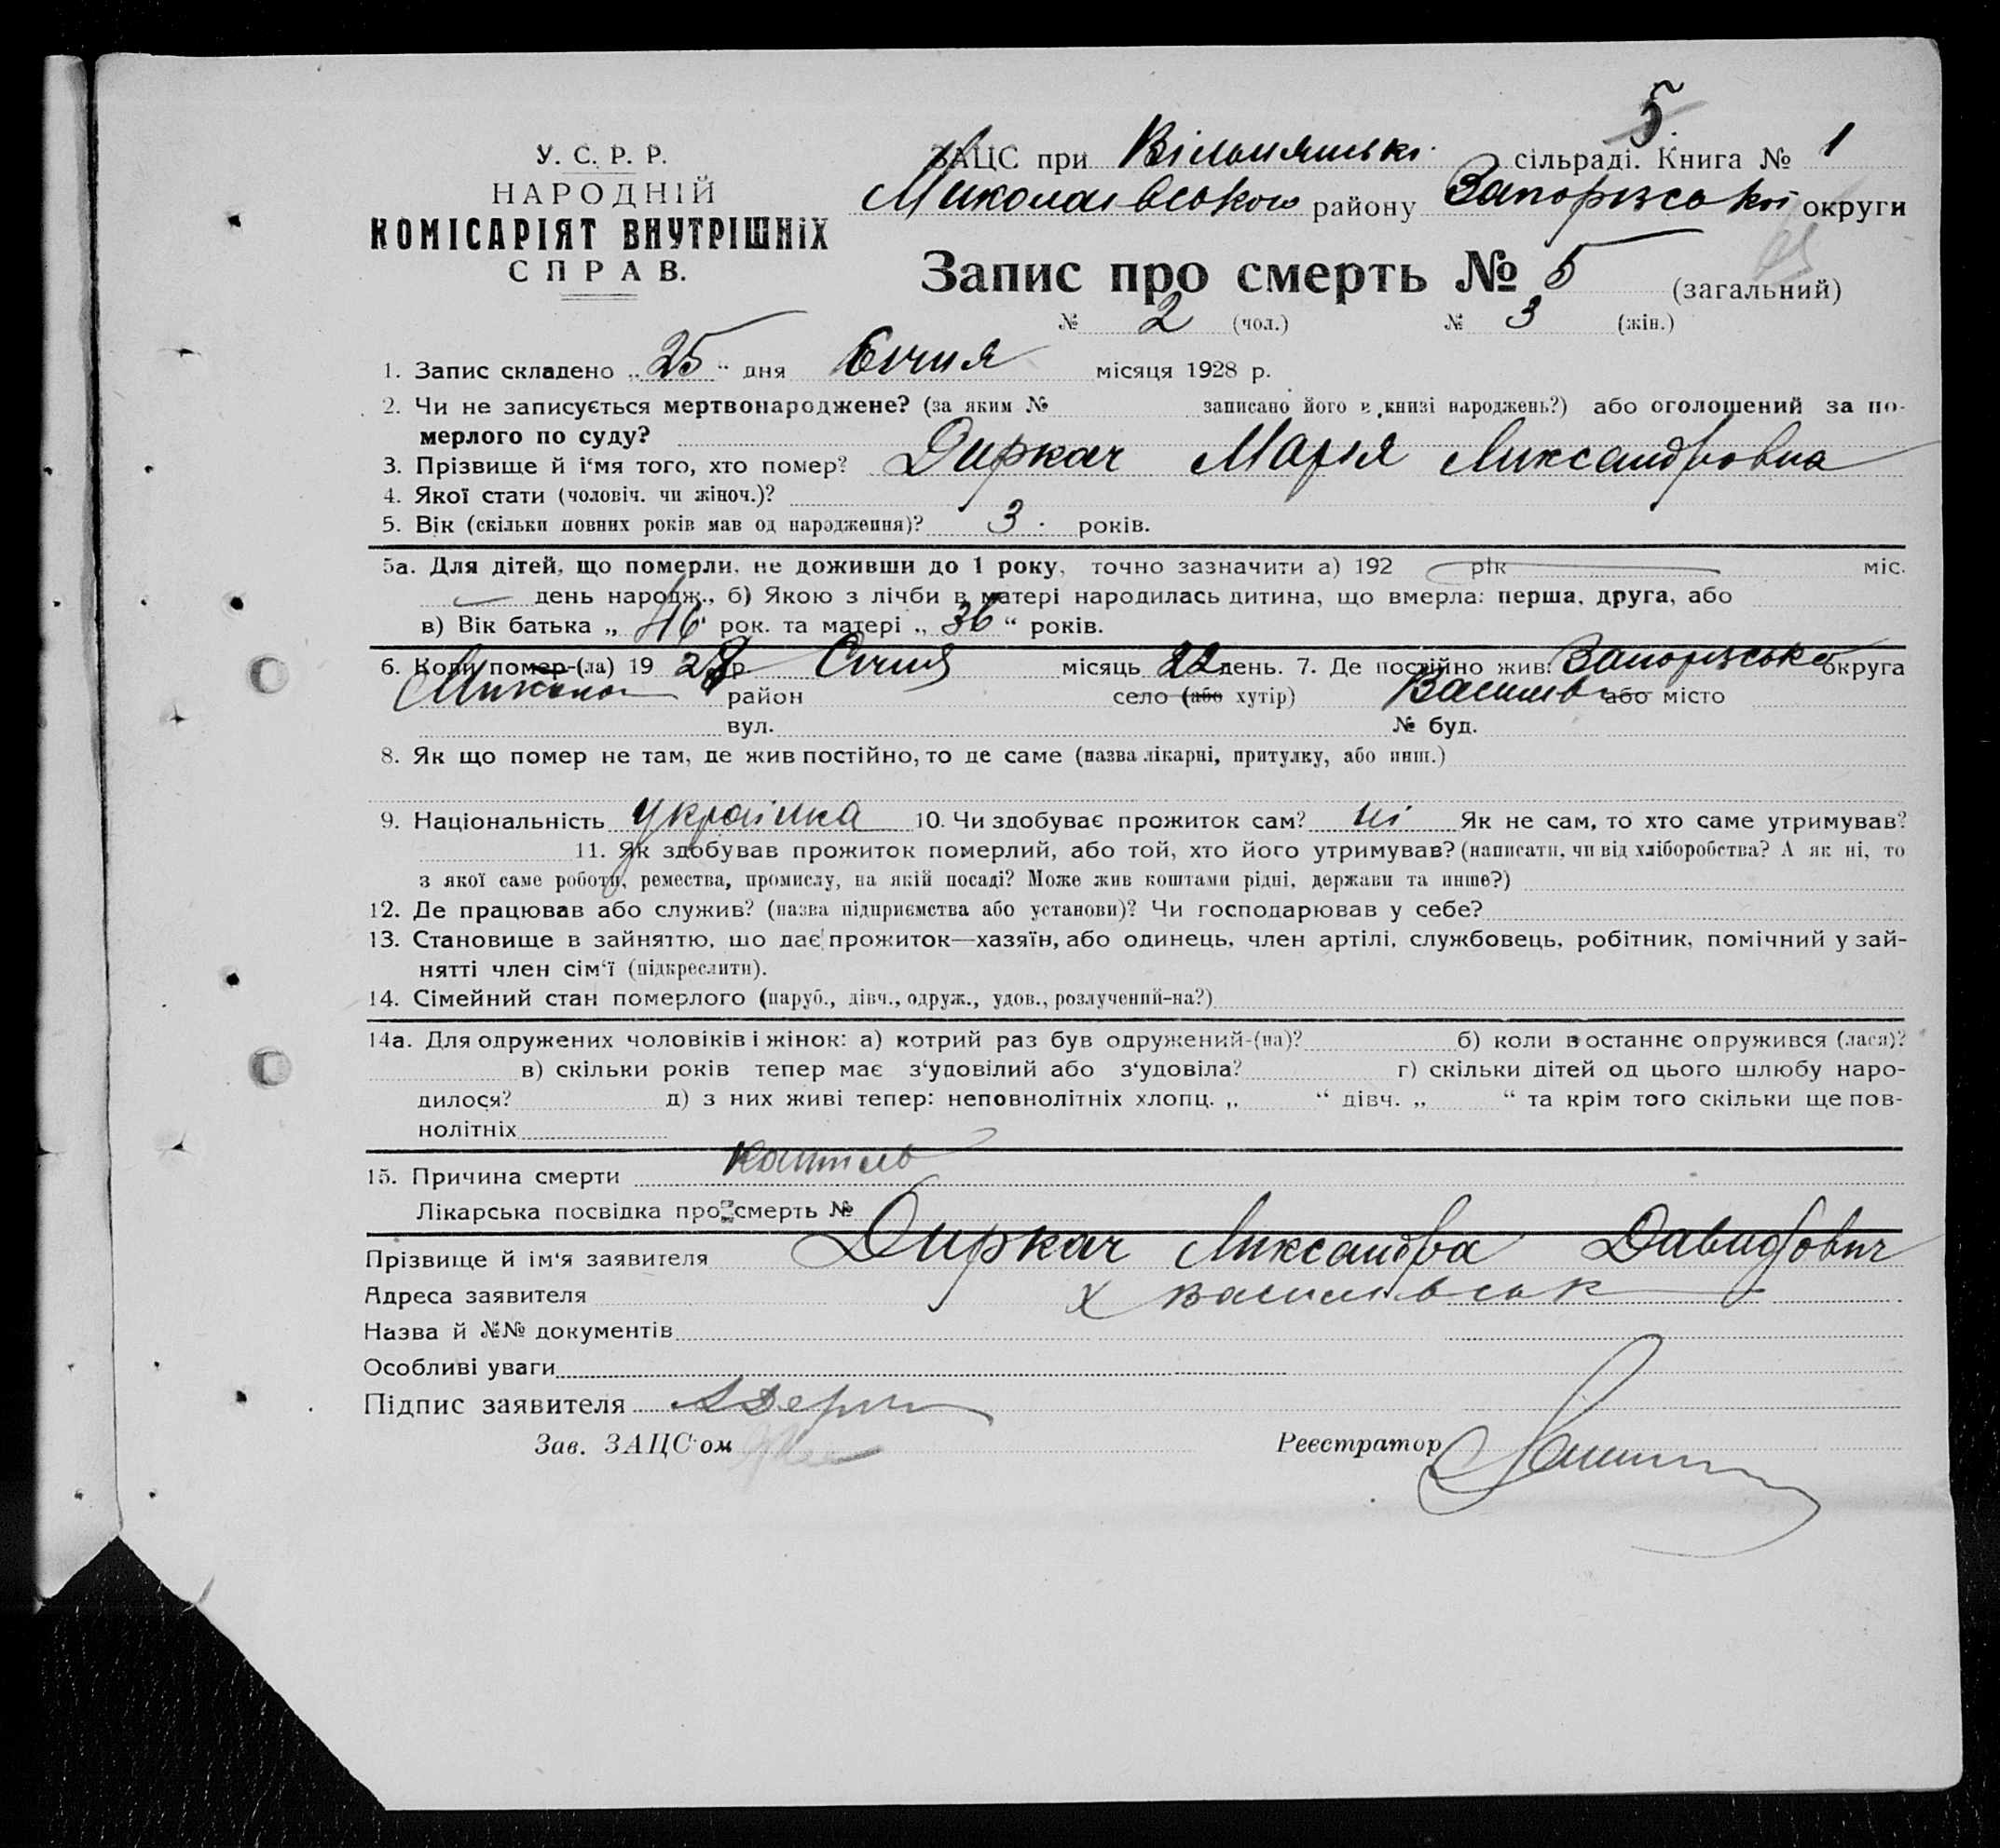 5.
У. С. Р. Р.
НАРОДНІЙ
КОМІСАРІЯТ ВНУТРІШНІХ
СПРАВ.
ЗАЦС при Вільнянські сільраді. Книга № 1
Миколаївського району Запорізської округи
Запис про смерть № 5 (загальний)
№ 2 (чол.) № 3 (жін.)
1. Запис складено „25“ дня Січня місяця 1928 р.
2. Чи не записується мертвонароджене? (за яким № записано його в книзі народжень?) або оголошений за по-
мерлого по суду?
3. Прізвище й і‘мя того, хто помер? Диркач Марія Ликсандровна
4. Якої стати (чоловіч. чи жіноч.)?
5. Вік (скільки повних років мав од народження)? 3 . років.
5а. Для дітей, що померли, не доживши до 1 року, точно зазначити а) 192 рік міс.
день народж., б) Якою з лічби в матері народилась дитина, що вмерла: перша, друга, або
в) Вік батька „46“ рок. та матері „36“ років.
6. Коли помер-(ла) 1928 р. Січня місяць 22 день. 7. Де постійно жив: Запорізсько округа
Микола район село (або хутір) Васильв або місто
вул. № буд.
8. Як що помер не там, де жив постійно, то де саме (назва лікарні, притулку, або инш.)
9. Національність українка 10. Чи здобуває прожиток сам? ні Як не сам, то хто саме утримував?
11. Як здобував прожиток померлий, або той, хто його утримував? (написати, чи від хліборобства? А як ні, то
з якої саме роботи, ремества, промислу, на якій посаді? Може жив коштами рідні, держави та инше?)
12. Де працював або служив? (назва підприємства або установи)? Чи господарював у себе?
13. Становище в зайняттю, що дає прожиток—хазяїн, або одинець, член артілі, службовець, робітник, помічний у зай-
нятті член сім‘ї (підкреслити).
14. Сімейний стан померлого (паруб., дівч., одруж., удов., розлучений-на?)
14а. Для одружених чоловіків і жінок: а) котрий раз був одружений-(на)? б) коли востаннє одружився (лася)?
в) скільки років тепер має з‘удовілий або з‘удовіла? г) скільки дітей од цього шлюбу наро-
дилося? д) з них живі тепер: неповнолітніх хлопц. „ “ дівч. „ “ та крім того скільки ще пов-
нолітніх
15. Причина смерти кашиль
Лікарська посвідка про смерть №
Прізвище й ім‘я заявителя Диркач Ликсандра Давидович
Адреса заявителя х Васильвськ
Назва й №№ документів
Особливі уваги
Підпис заявителя
Зав. ЗАЦС‘ом Реєстратор